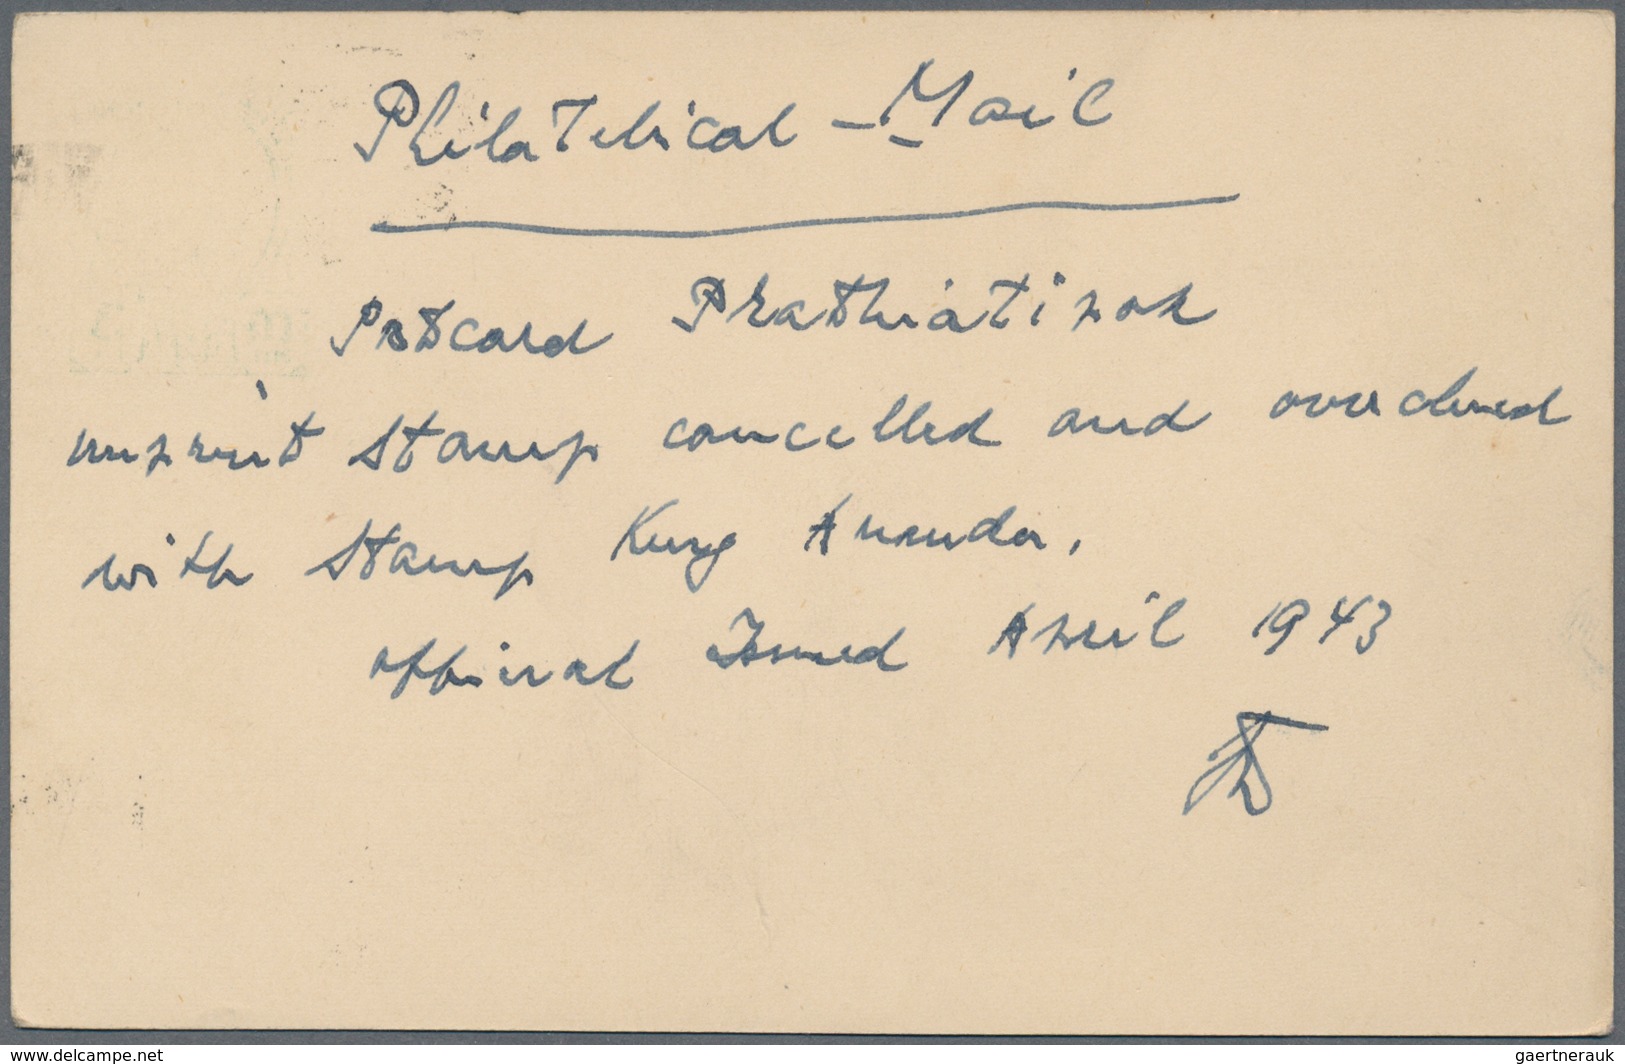 Philatelical - Mail
Postcard Prathiatipok
imprint stamp cancelled and over
with stamp King Ananda.
official Issued April 1943
www.delcampe.net
gaertnerauk